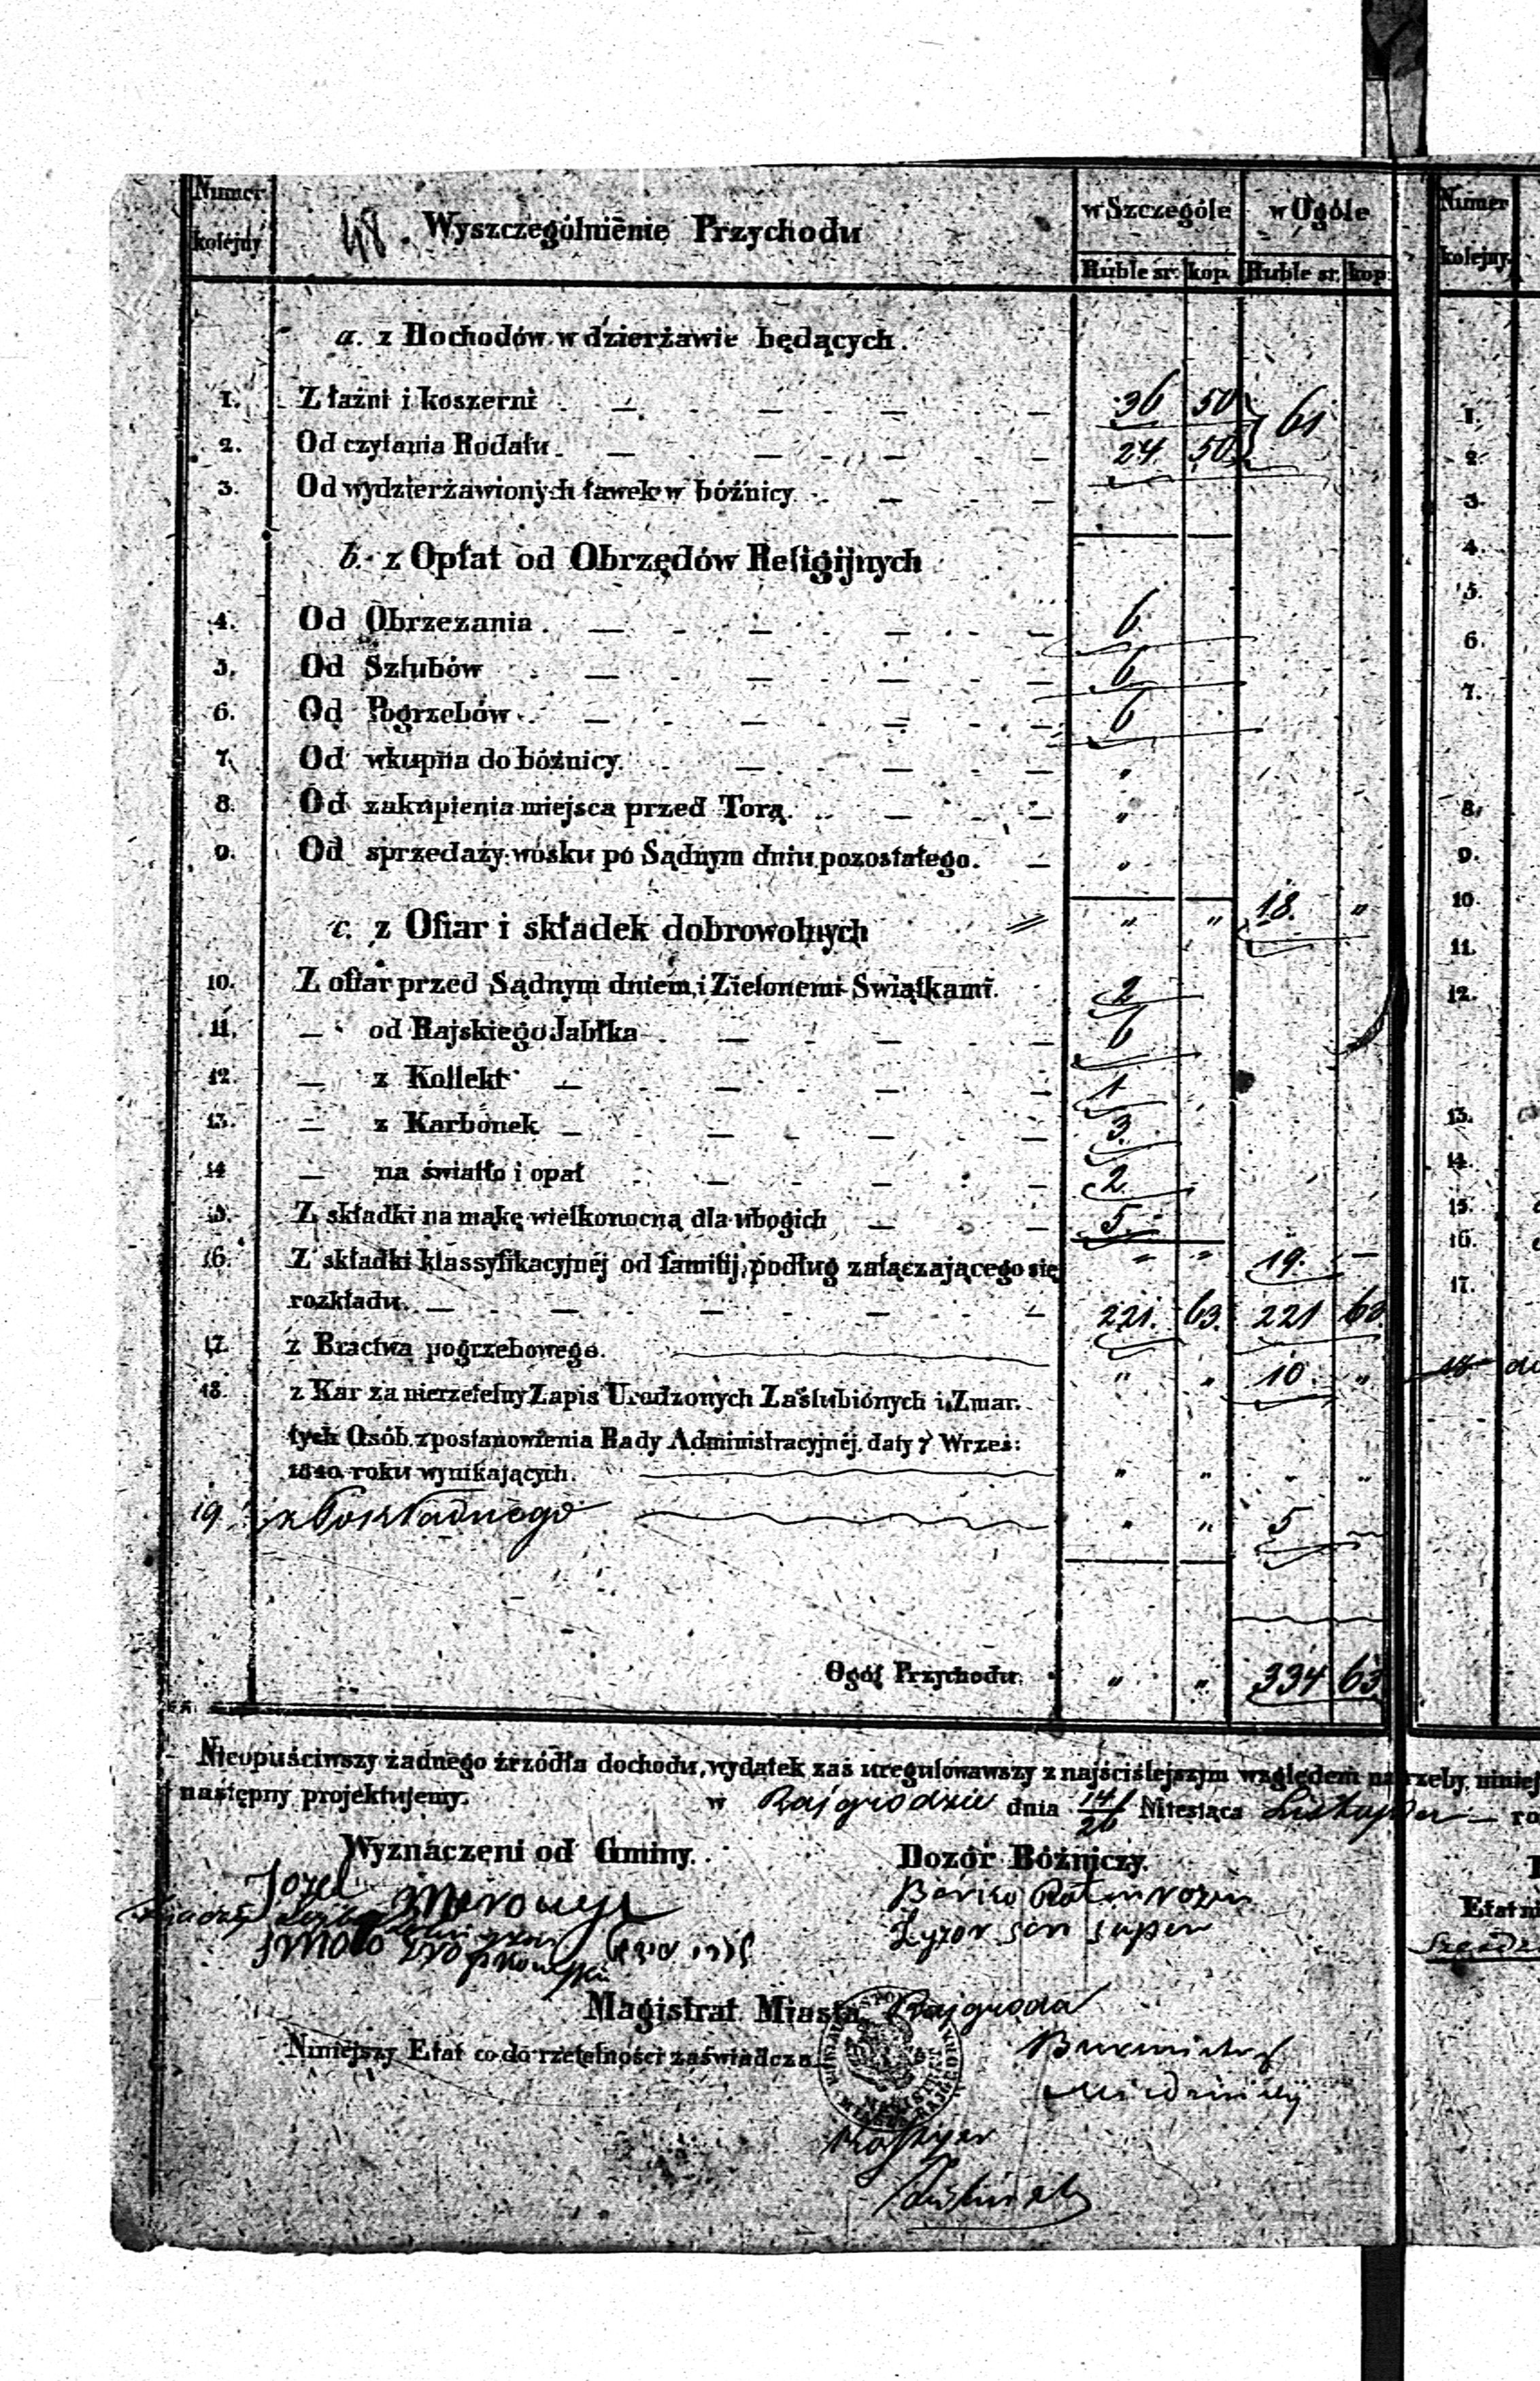 Numer kolejny
48. Wyszczególnienie Przychodu
w Szczególe w Ogóle
Ruble sr. kop. Ruble sr. kop.
Numer kolejny
a. z Dochodów w dzierżawie będących.
1. Z łaźni i koszerni 36 50 61
2. Od czytania Rodału 24 50
3. Od wydzierżawionych ławek w bóźnicy
b. z Opłat od Obrzędów Religijnych
4. Od Obrzezania 6
5. Od Szlubów 6
6. Od Pogrzebów 6
7. Od wkupna do bóżnicy "
8. Od zakupienia miejsca przed Torą "
9. Od sprzedaży wosku po Sądnym dniu pozostałego. "
c. z Ofiar i składek dobrowolnych " " 18. "
10. Z ofiar przed Sądnym dniem i Zielonemi Swiątkami. 2
11. — od Rajskiego Jabłka 6
12. — z Kollekt 1
13. — z Karbonek 3.
14 — na światło i opał 2.
15. Z składki na mąkę wielkonocną dla ubogich 5.
16. Z składki klassyfikacyjnéj od familij, podług załączającego się " " 19. —
rozkładu. 221. 63. 221 63.
17. z Bractwa pogrzebowego. " " 10. "
18. z Kar za nierzetelny Zapis Urodzonych Zaślubionych i Zmar-
łych Osób, z postanowienia Rady Administracyjnéj daty 7 Wrześ:
1840 roku wynikających. " " " "
19 " " 5 —
Ogół Przychodu. " " 334 63
Nieopuściwszy żadnego źrzódła dochodu, wydatek zaś uregulowawszy z najściślejszym względem
następny projektujemy. w Rajgrodzie dnia 14/26 Miesiąca Listopada
Wyznaczeni od Gminy. Dozór Bóżniczy.
Magistrat Miasta Rajgroda
Niniejszy Etat co do rzetelności zaświadcza
Burmistrz
Kassyer
1.
2.
3.
4.
5.
6.
7.
8.
9.
10
11.
12.
13.
14.
15.
16.
17.